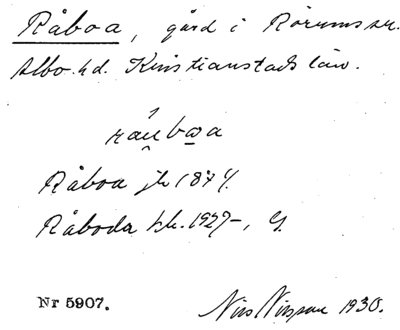 Råboa, gård i Rörums sn.
Albo hd. Kristianstads län.
Råboa jb 1874.
Råboda kk. 1927-, G.
Nr 5907.
Nils Nilsson 1930.